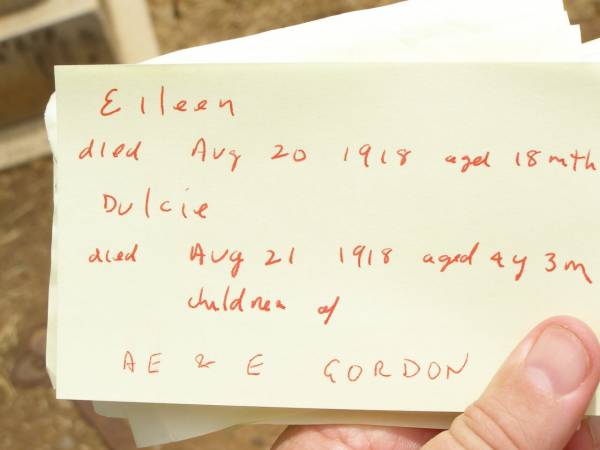 Eileen
died Aug 20 1918 aged 18mth
Dulcie
died Aug 21 1918 aged 4y 3m
children of
AE & E GORDON